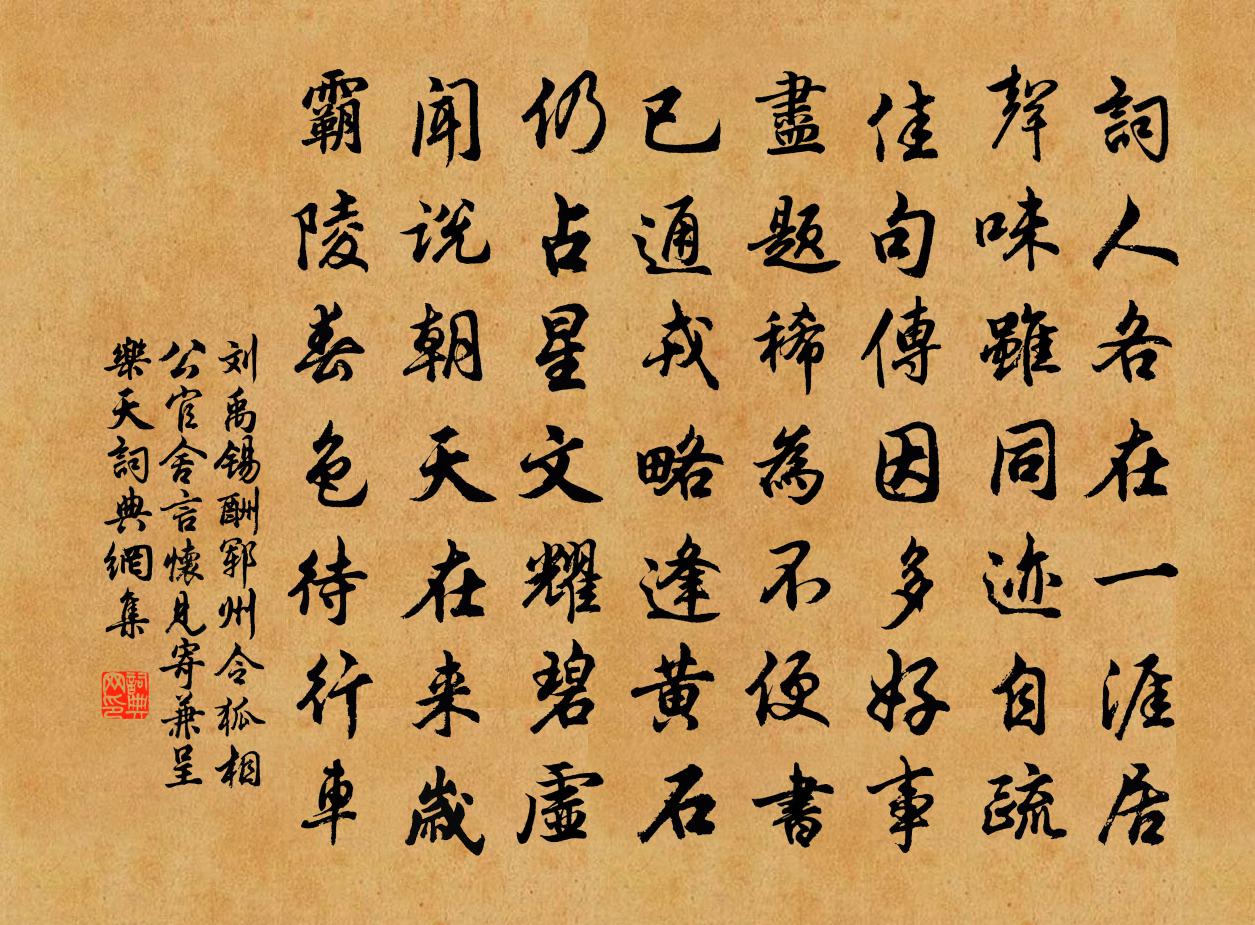 詞人各在一涯居
聲味雖同迹自疏
佳句傳因多好事
盡題稀為不便書
已通戎略逢黃石
仍占星文耀碧虛
聞说朝天在来歲
霸陵春色待行車
刘禹锡酬鄆州令狐相
公官舍言懷見寄兼呈
樂天詞典網集
詞典网印